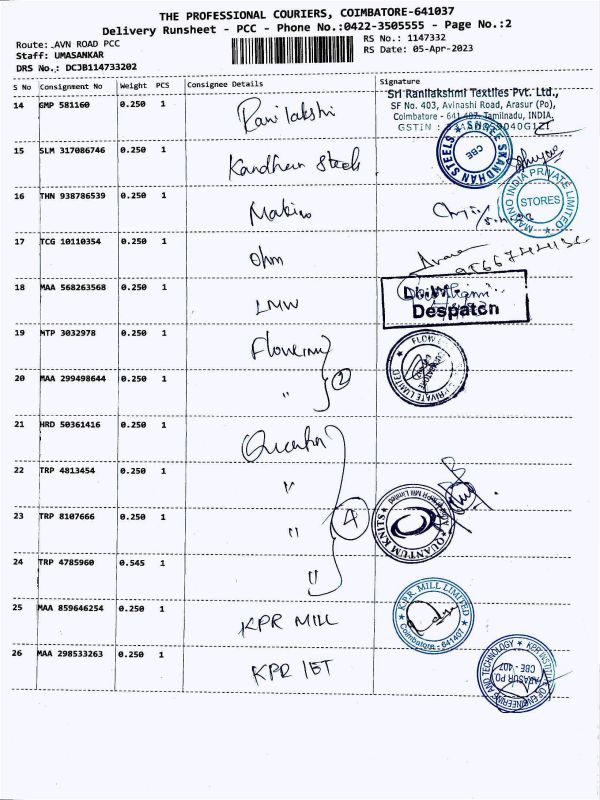 THE PROFESSIONAL COURIERS, COIMBATORE-641037
Delivery Runsheet - PCC - Phone No.:0422-3505555 - Page No.:2
Route: AVN ROAD PCC
RS No.: 1147332
Staff: UMASANKAR
RS Date: 05-Apr-2023
DRS No.: DCJB114733202
S No Consignment No Weight PCS Consignee Details Signature
14 GMP 581160 0.250 1 Ranilakshi
Sri Ranilakshmi Textiles Pvt. Ltd.,
SF No. 403, Avinashi Road, Arasur (Po),
Coimbatore - 641 407, Tamilnadu, INDIA.
GSTIN :
15 SLM 317086746 0.250 1 Kandhan Steels
SHREE SKANDHAN STEELS
CBE
16 THN 938786539 0.250 1 Makino
MAKINO INDIA PRIVATE LIMITED
STORES
17 TCG 10110354 0.250 1 Ohm
18 MAA 568263568 0.250 1 LMW
Despatch
19 MTP 3032978 0.250 1
PRIVATE LIMITED
20 MAA 299498644 0.250 1 " 2
21 HRD 50361416 0.250 1
22 TRP 4813454 0.250 1 "
23 TRP 8107666 0.250 1 " 4
QUANTUM KNITS
KPR Mill Limited
24 TRP 4785960 0.545 1 "
25 MAA 859646254 0.250 1 KPR MILL
K.P.R. MILL LIMITED
Coimbatore - 641407
26 MAA 298533263 0.250 1 KPR IET
KPR INSTITUTE OF ENGINEERING AND TECHNOLOGY
ARASUR PO.
CBE - 407